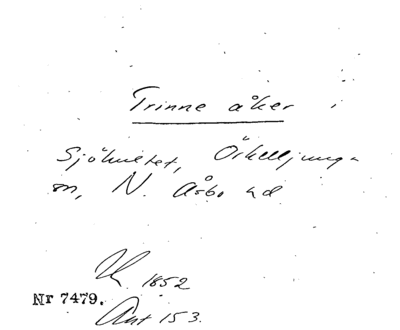 Trinne åker i
Sjöhultet, Örkelljunga
sn, N. Åsbo hd
U. 1852
Nr 7479.
Ant 153.